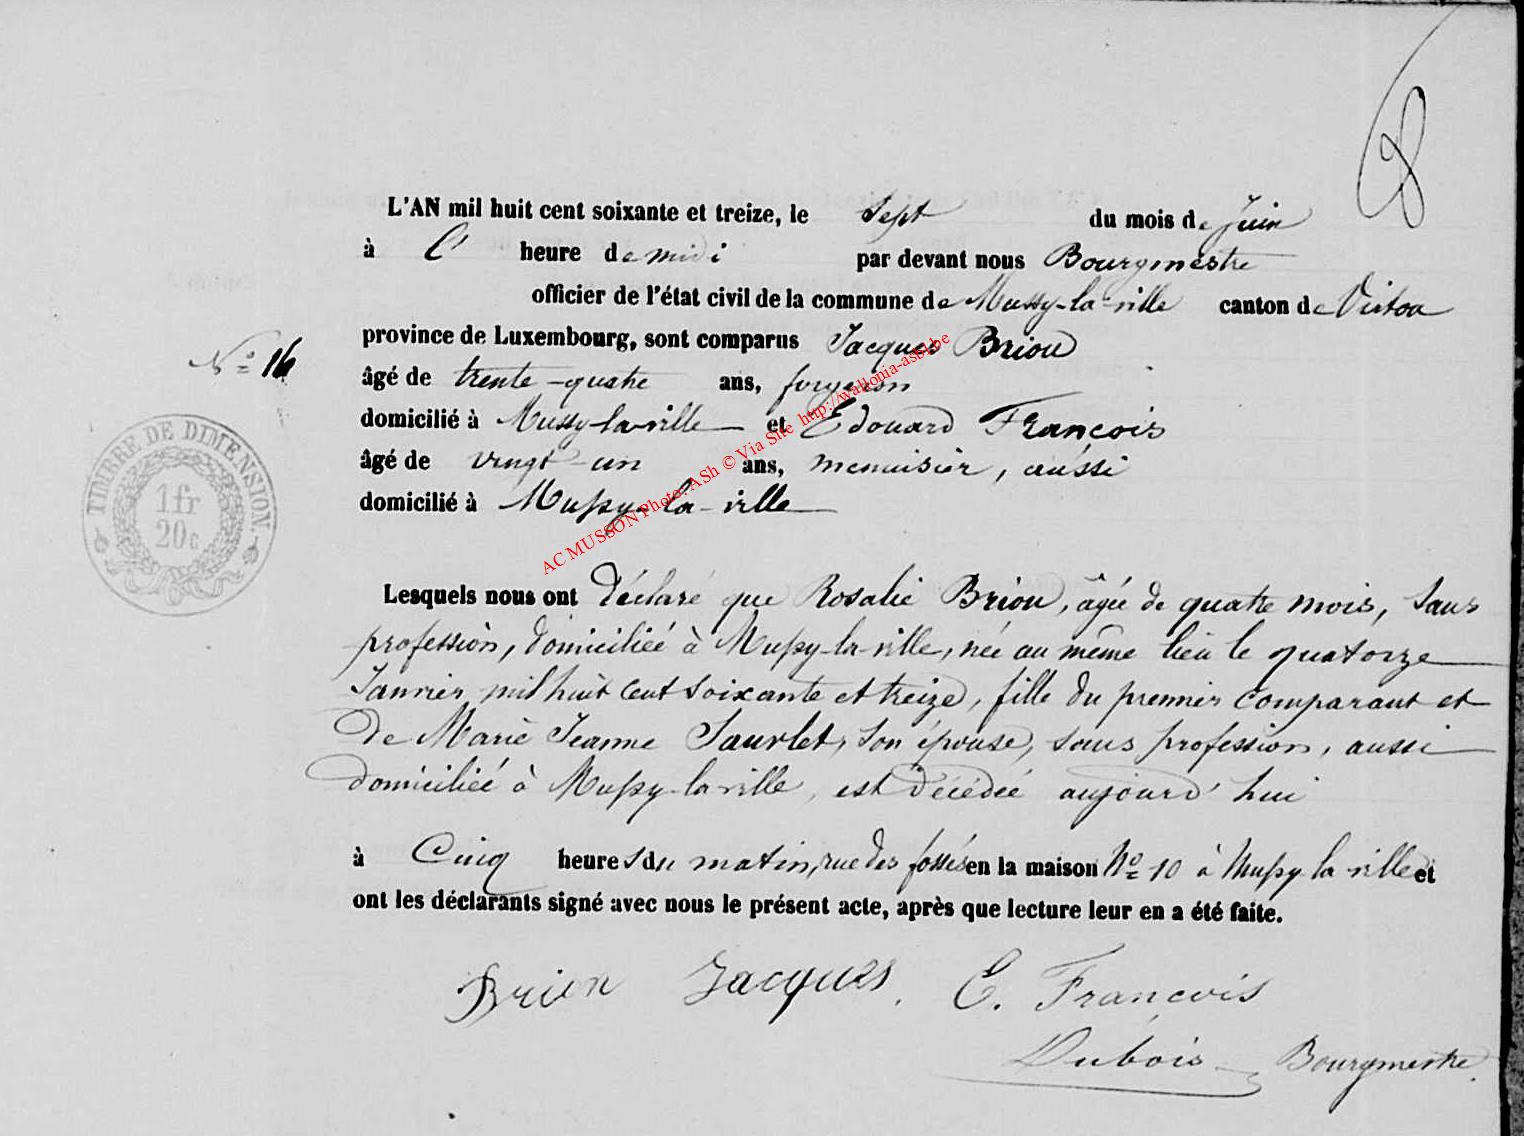 L'AN mil huit cent soixante et treize, le Sept du mois de Juin
à l' heure de midi par devant nous Bourgmestre
officier de l'état civil de la commune de Mussy-la-ville canton de Virton
province de Luxembourg, sont comparus Jacques Briou
N° 16
âgé de trente-quatre ans, forgeron
domicilié à Mussy-la-ville et Edouard François
âgé de vingt-un ans, menuisier, aussi
domicilié à Mussy-la-ville
TIMBRE DE DIMENSION
1 fr
20 c
AC MUSSON Photo: ASh © Via Site http://wallonia-asbl.be
Lesquels nous ont déclaré que Rosalie Briou, âgée de quatre mois, sans
profession, domiciliée à Mussy-la-ville, née au même lieu le quatorze
Janvier mil huit cent soixante et treize, fille du premier comparant et
de Marie Jeanne Saurlet, son épouse, sans profession, aussi
domiciliée à Mussy-la-ville, est décédée aujourd'hui
à Cinq heures du matin, rue des fossés en la maison N° 10 à Mussy la ville et
ont les déclarants signé avec nous le présent acte, après que lecture leur en a été faite.
Briou Jacques. E. François
Dubois Bourgmestre.